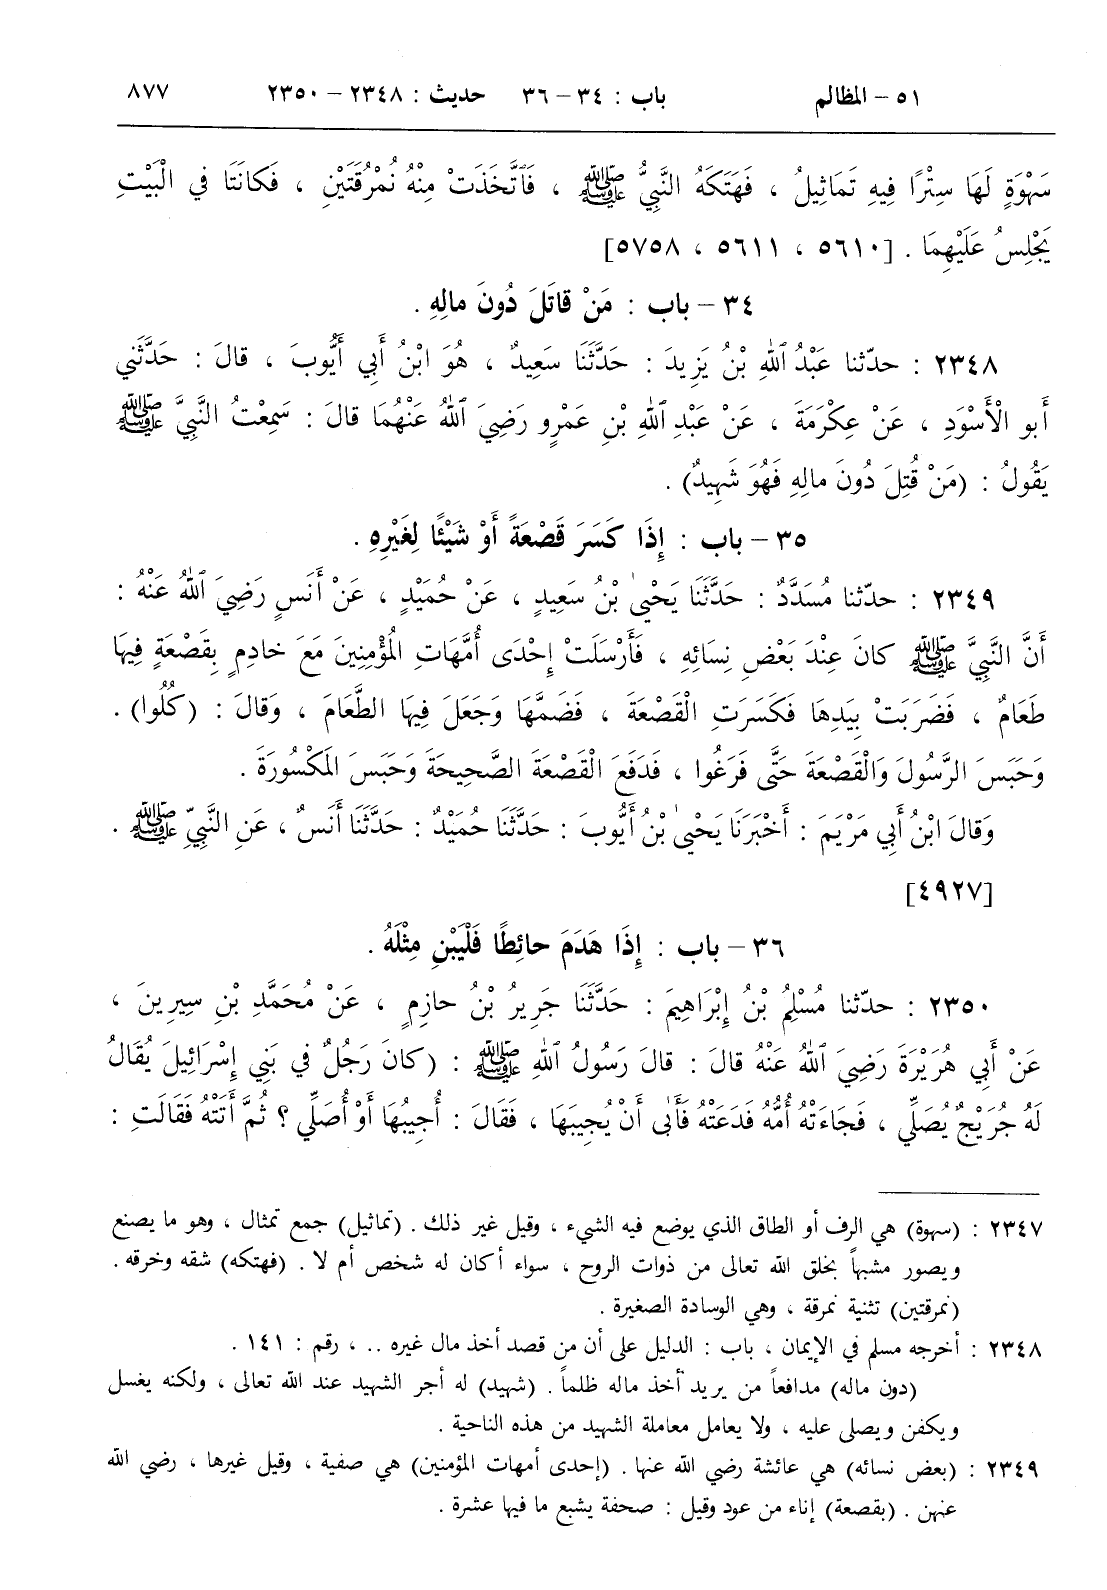 ٥١ - المظالم باب : ٣٤ - ٣٦ حديث : ٢٣٤٨ - ٢٣٥٠ ٨٧٧
سَهْوَةٍ لَهَا سِتْرًا فِيهِ تَمَاثِيلُ ، فَهَتَكَهُ النَّبِيُّ ﷺ ، فَٱتَّخَذَتْ مِنْهُ نُمْرُقَتَيْنِ ، فَكانَتَا في الْبَيْتِ
يَجْلِسُ عَلَيْهِمَا . [٥٦١٠ ، ٥٦١١ ، ٥٧٥٨]
٣٤ - باب : مَنْ قاتَلَ دُونَ مالِهِ .
٢٣٤٨ : حدّثنا عَبْدُ ٱللهِ بْنُ يَزِيدَ : حَدَّثَنَا سَعِيدٌ ، هُوَ ابْنُ أَبِي أَيُّوبَ ، قالَ : حَدَّثَنِي
أَبو الْأَسْوَدِ ، عَنْ عِكْرِمَةَ ، عَنْ عَبْدِ ٱللهِ بْنِ عَمْرٍو رَضِيَ ٱللهُ عَنْهُمَا قالَ : سَمِعْتُ النَّبِيَّ ﷺ
يَقُولُ : (مَنْ قُتِلَ دُونَ مالِهِ فَهُوَ شَهِيدٌ) .
٣٥ - باب : إِذَا كَسَرَ قَصْعَةً أَوْ شَيْئًا لِغَيْرِهِ .
٢٣٤٩ : حدّثنا مُسَدَّدٌ : حَدَّثَنَا يَحْيىٰ بْنُ سَعِيدٍ ، عَنْ حُمَيْدٍ ، عَنْ أَنَسٍ رَضِيَ ٱللهُ عَنْهُ :
أَنَّ النَّبِيَّ ﷺ كانَ عِنْدَ بَعْضِ نِسَائِهِ ، فَأَرْسَلَتْ إِحْدَى أُمَّهَاتِ الْمُؤْمِنِينَ مَعَ خادِمٍ بِقَصْعَةٍ فِيهَا
طَعَامٌ ، فَضَرَبَتْ بِيَدِهَا فَكَسَرَتِ الْقَصْعَةَ ، فَضَمَّهَا وَجَعَلَ فِيهَا الطَّعَامَ ، وَقالَ : (كُلُوا) .
وَحَبَسَ الرَّسُولَ وَالْقَصْعَةَ حَتَّى فَرَغُوا ، فَدَفَعَ الْقَصْعَةَ الصَّحِيحَةَ وَحَبَسَ المَكْسُورَةَ .
وَقالَ ابْنُ أَبِي مَرْيَمَ : أَخْبَرَنَا يَحْيىٰ بْنُ أَيُّوبَ : حَدَّثَنَا حُمَيْدٌ : حَدَّثَنَا أَنَسٌ ، عَنِ النَّبِيِّ ﷺ .
[٤٩٢٧]
٣٦ - باب : إِذَا هَدَمَ حائِطًا فَلْيَبْنِ مِثْلَهُ .
٢٣٥٠ : حدّثنا مُسْلِمُ بْنُ إِبْرَاهِيمَ : حَدَّثَنَا جَرِيرُ بْنُ حازِمٍ ، عَنْ مُحَمَّدِ بْنِ سِيرِينَ ،
عَنْ أَبِي هُرَيْرَةَ رَضِيَ ٱللهُ عَنْهُ قالَ : قالَ رَسُولُ ٱللهِ ﷺ : (كانَ رَجُلٌ في بَنِي إِسْرَائِيلَ يُقَالُ
لَهُ جُرَيْجٌ يُصَلِّي ، فَجَاءَتْهُ أُمُّهُ فَدَعَتْهُ فَأَبٰى أَنْ يُجِيبَهَا ، فَقَالَ : أُجِيبُهَا أَوْ أُصَلِّي ؟ ثُمَّ أَتَتْهُ فَقَالَتِ :
٢٣٤٧ : (سهوة) هي الرف أو الطاق الذي يوضع فيه الشيء ، وقيل غير ذلك . (تماثيل) جمع تمثال ، وهو ما يصنع
ويصور مشبهاً بخلق الله تعالى من ذوات الروح ، سواء أكان له شخص أم لا . (فهتكه) شقه وخرقه .
(نمرقتين) تثنية نمرقة ، وهي الوسادة الصغيرة .
٢٣٤٨ : أخرجه مسلم في الإيمان ، باب : الدليل على أن من قصد أخذ مال غيره .. ، رقم : ١٤١ .
(دون ماله) مدافعاً من يريد أخذ ماله ظلماً . (شهيد) له أجر الشهيد عند الله تعالى ، ولكنه يغسل
ويكفن ويصلى عليه ، ولا يعامل معاملة الشهيد من هذه الناحية .
٢٣٤٩ : (بعض نسائه) هي عائشة رضي الله عنها . (إحدى أمهات المؤمنين) هي صفية ، وقيل غيرها ، رضي الله
عنهن . (بقصعة) إناء من عود وقيل : صحفة يشبع ما فيها عشرة .